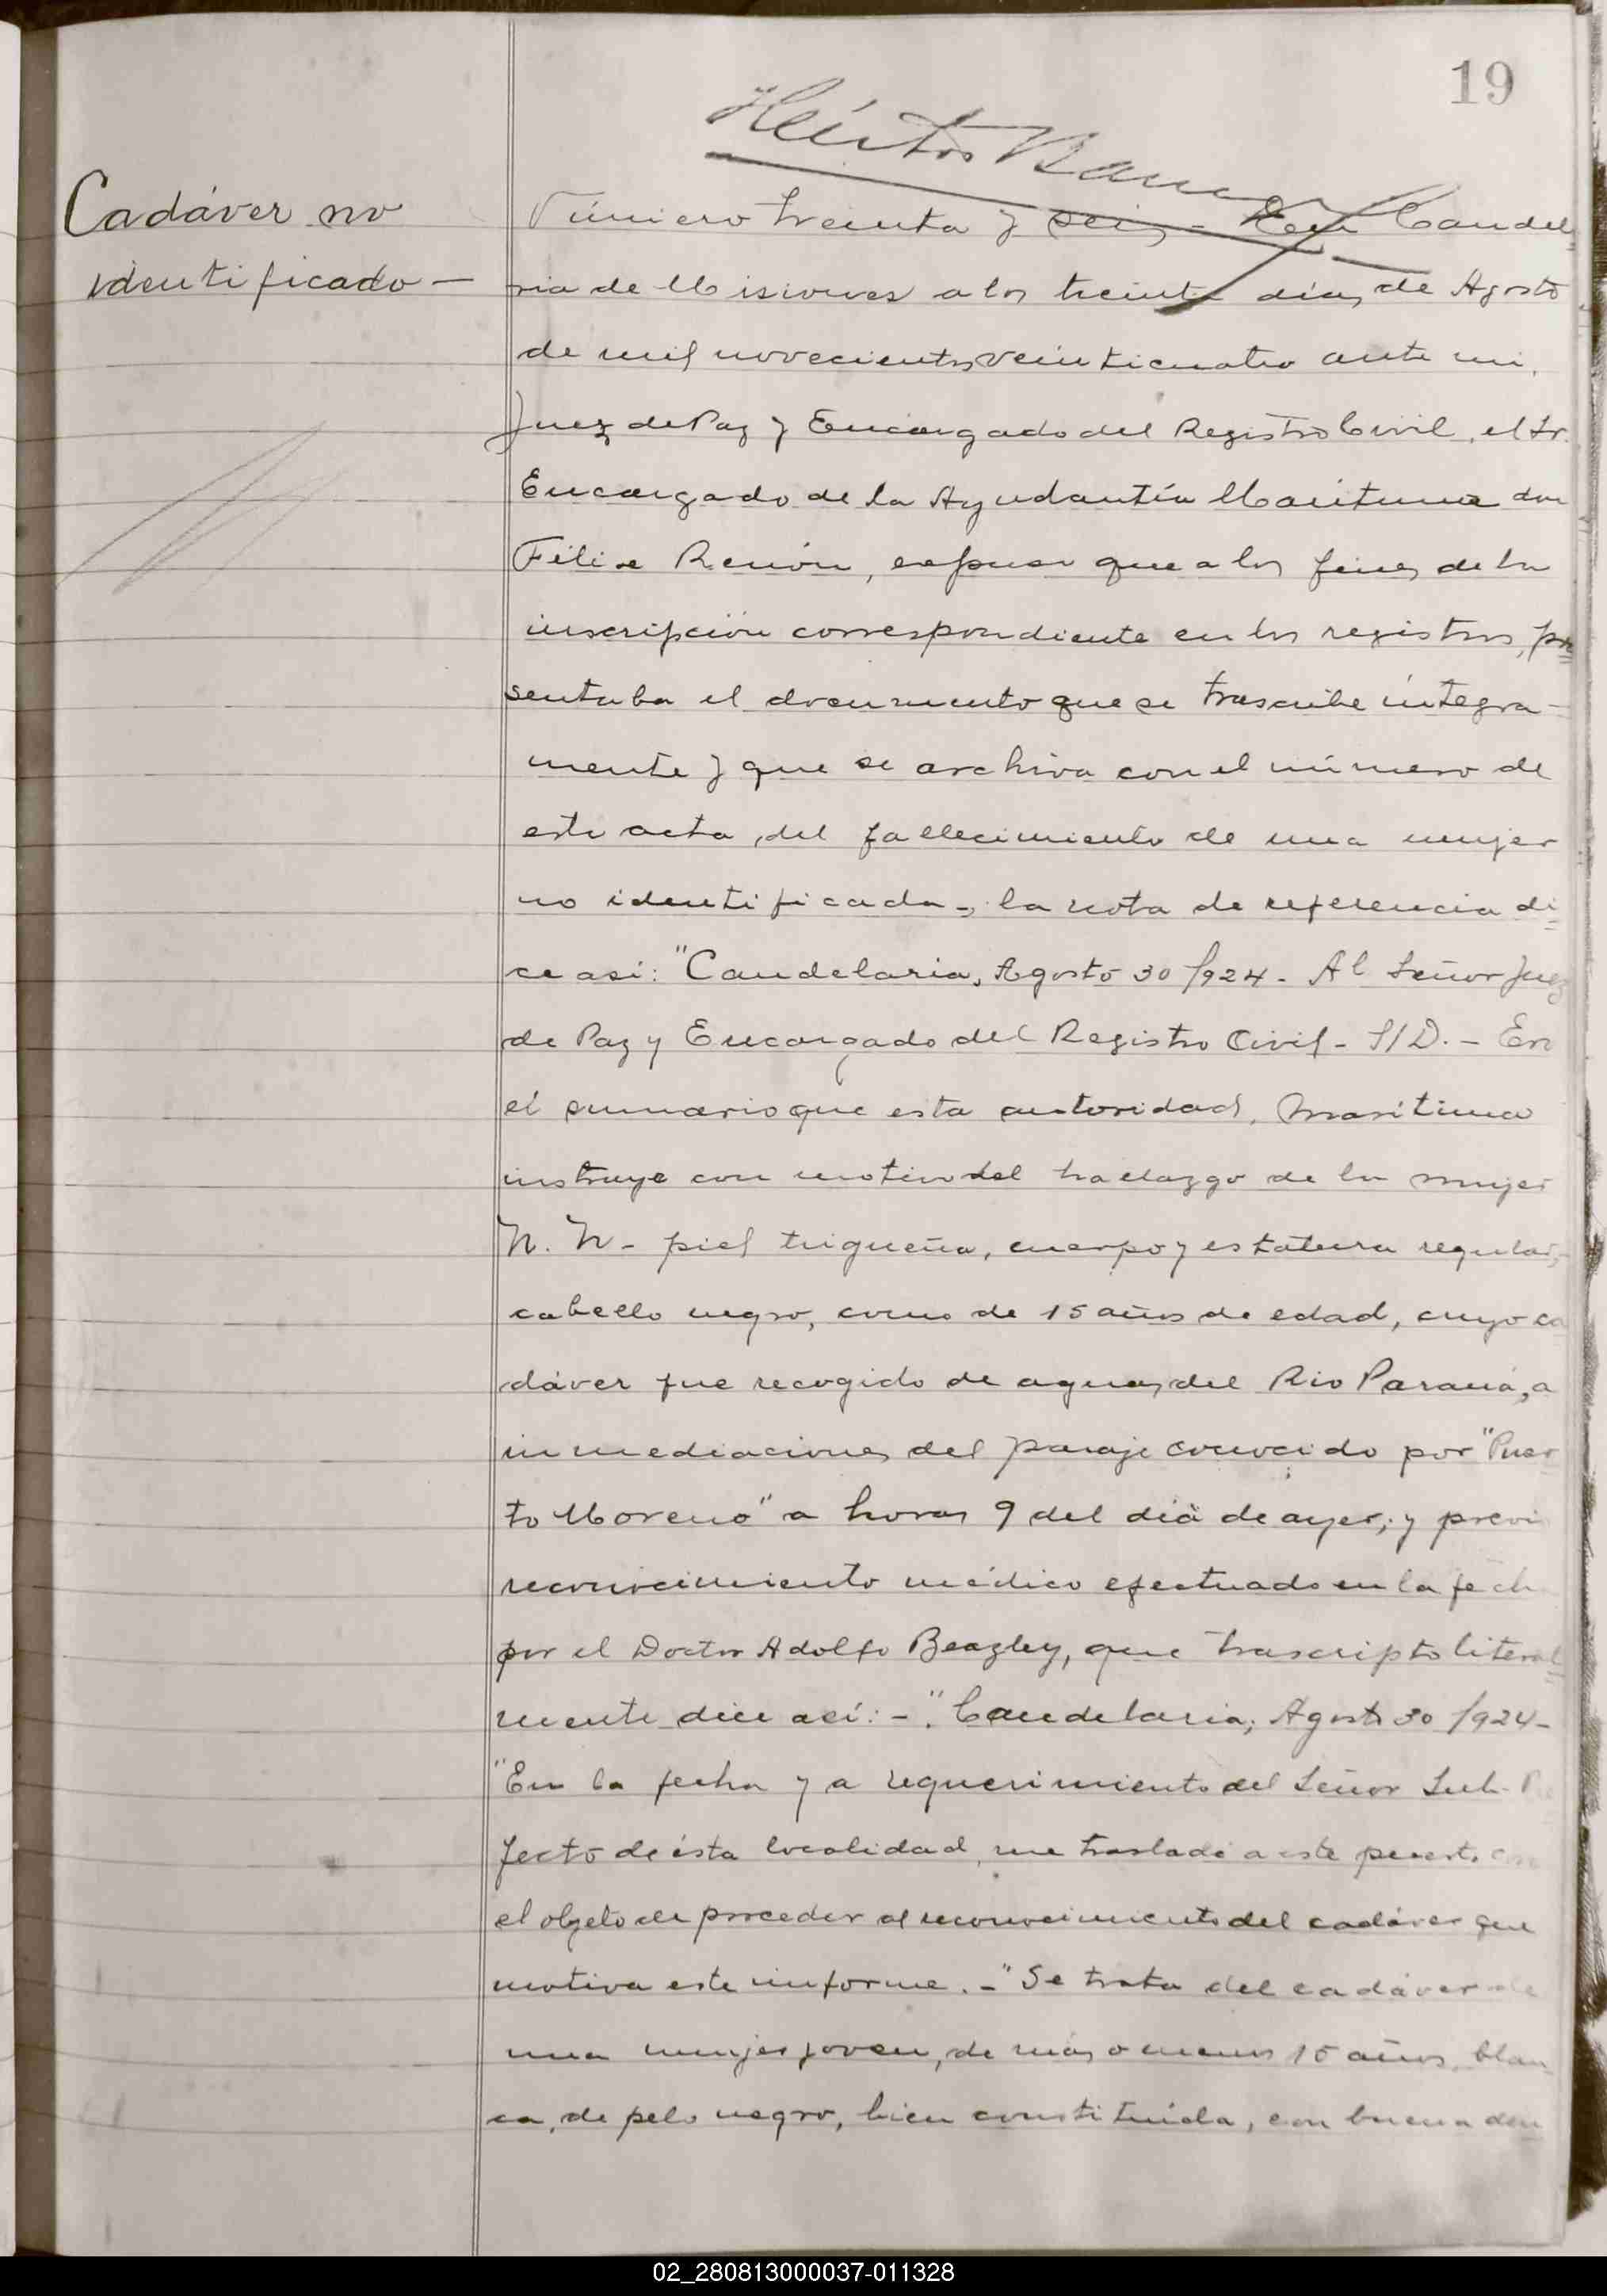 19
Héctor
Cadáver no
identificado —
Número treinta y seis - En Candel=
ria de Misiones a los treinta días de Agosto
de mil novecientos veinticuatro ante mi,
Juez de Paz y Encargado del Registro Civil, el Sr.
Encargado de la Ayudantía Marítima don
Felix, expuso que a los fines de la
inscripción correspondiente en los registros, pre=
sentaba el documento que se trascribe integra=
mente y que se archiva con el número de
este acta, del fallecimiento de una mujer
no identificada -, la nota de referencia di=
ce así: "Candelaria, Agosto 30/924 - Al Señor Juez
de Paz y Encargado del Registro Civil - S/D. - En
el sumario que esta autoridad, marítima
instruye con motivo del hallazgo de la mujer
N. N - piel trigueña, cuerpo y estatura regular,
cabello negro, como de 15 años de edad, cuyo ca
dáver fue recogido de aguas del Rio Paraná, a
inmediaciones del paraje conocido por "Puer
to Moreno" a horas 9 del día de ayer; y previo
reconocimiento médico efectuado en la fecha
por el Doctor Adolfo Beazley, que trascripto literal=
mente dice así: - "Candelaria, Agosto 30/924 -
"En la fecha y a requerimiento del Señor Sub-Pre
fecto de ésta localidad, me trasladé a este puerto con
el objeto de proceder al reconocimiento del cadáver que
motiva este informe. - "Se trata del cadáver de
una mujer joven, de más o menos 15 años, blan
ca, de pelo negro, bien constituída, con buena den
02_280813000037-011328